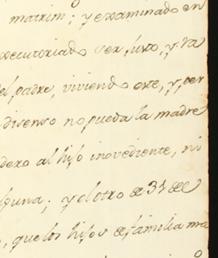 matrim.o; y examinado en
executoriado ser justo, y ra
el padre, viviendo este, y, per
disenso no pueda la madre
dero al hijo inovediente, ni
lguna; y el otro de 31 de
, que los hijos de familia ma